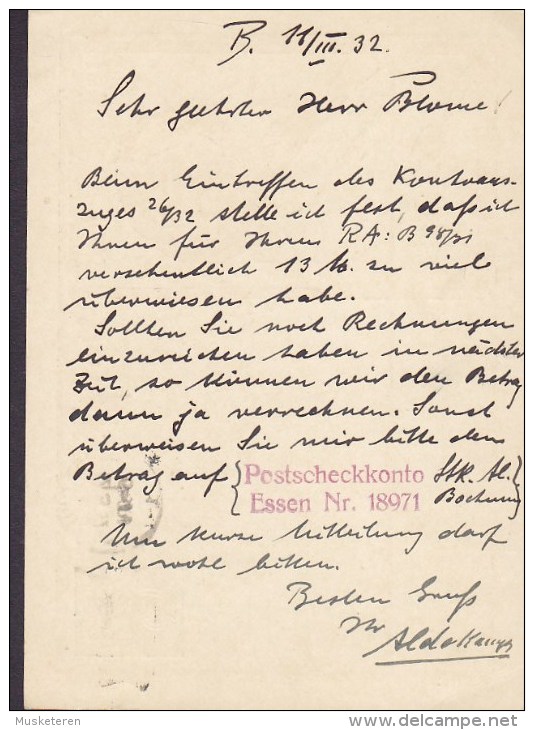 B. 11/III. 32.
Sehr geehrter Herr Blome!
Beim Eintreffen des Kontoaus-
zuges 26/32 stelle ich fest, daß ich
Ihnen für Ihren RA: B 98/31
versehentlich 13 M. zu viel
überwiesen habe.
Sollten Sie noch Rechnungen
einzureichen haben in nächster
Zeit, so können wir den Betrag
dann ja verrechnen. Sonst
überweisen Sie mir bitte den
Betrag auf { Postscheckkonto Stk. Al. }
Essen Nr. 18971 Bochum
Um kurze Mitteilung darf
ich wohl bitten.
Besten Gruß
Ihr
Musketeren
delcampe.net